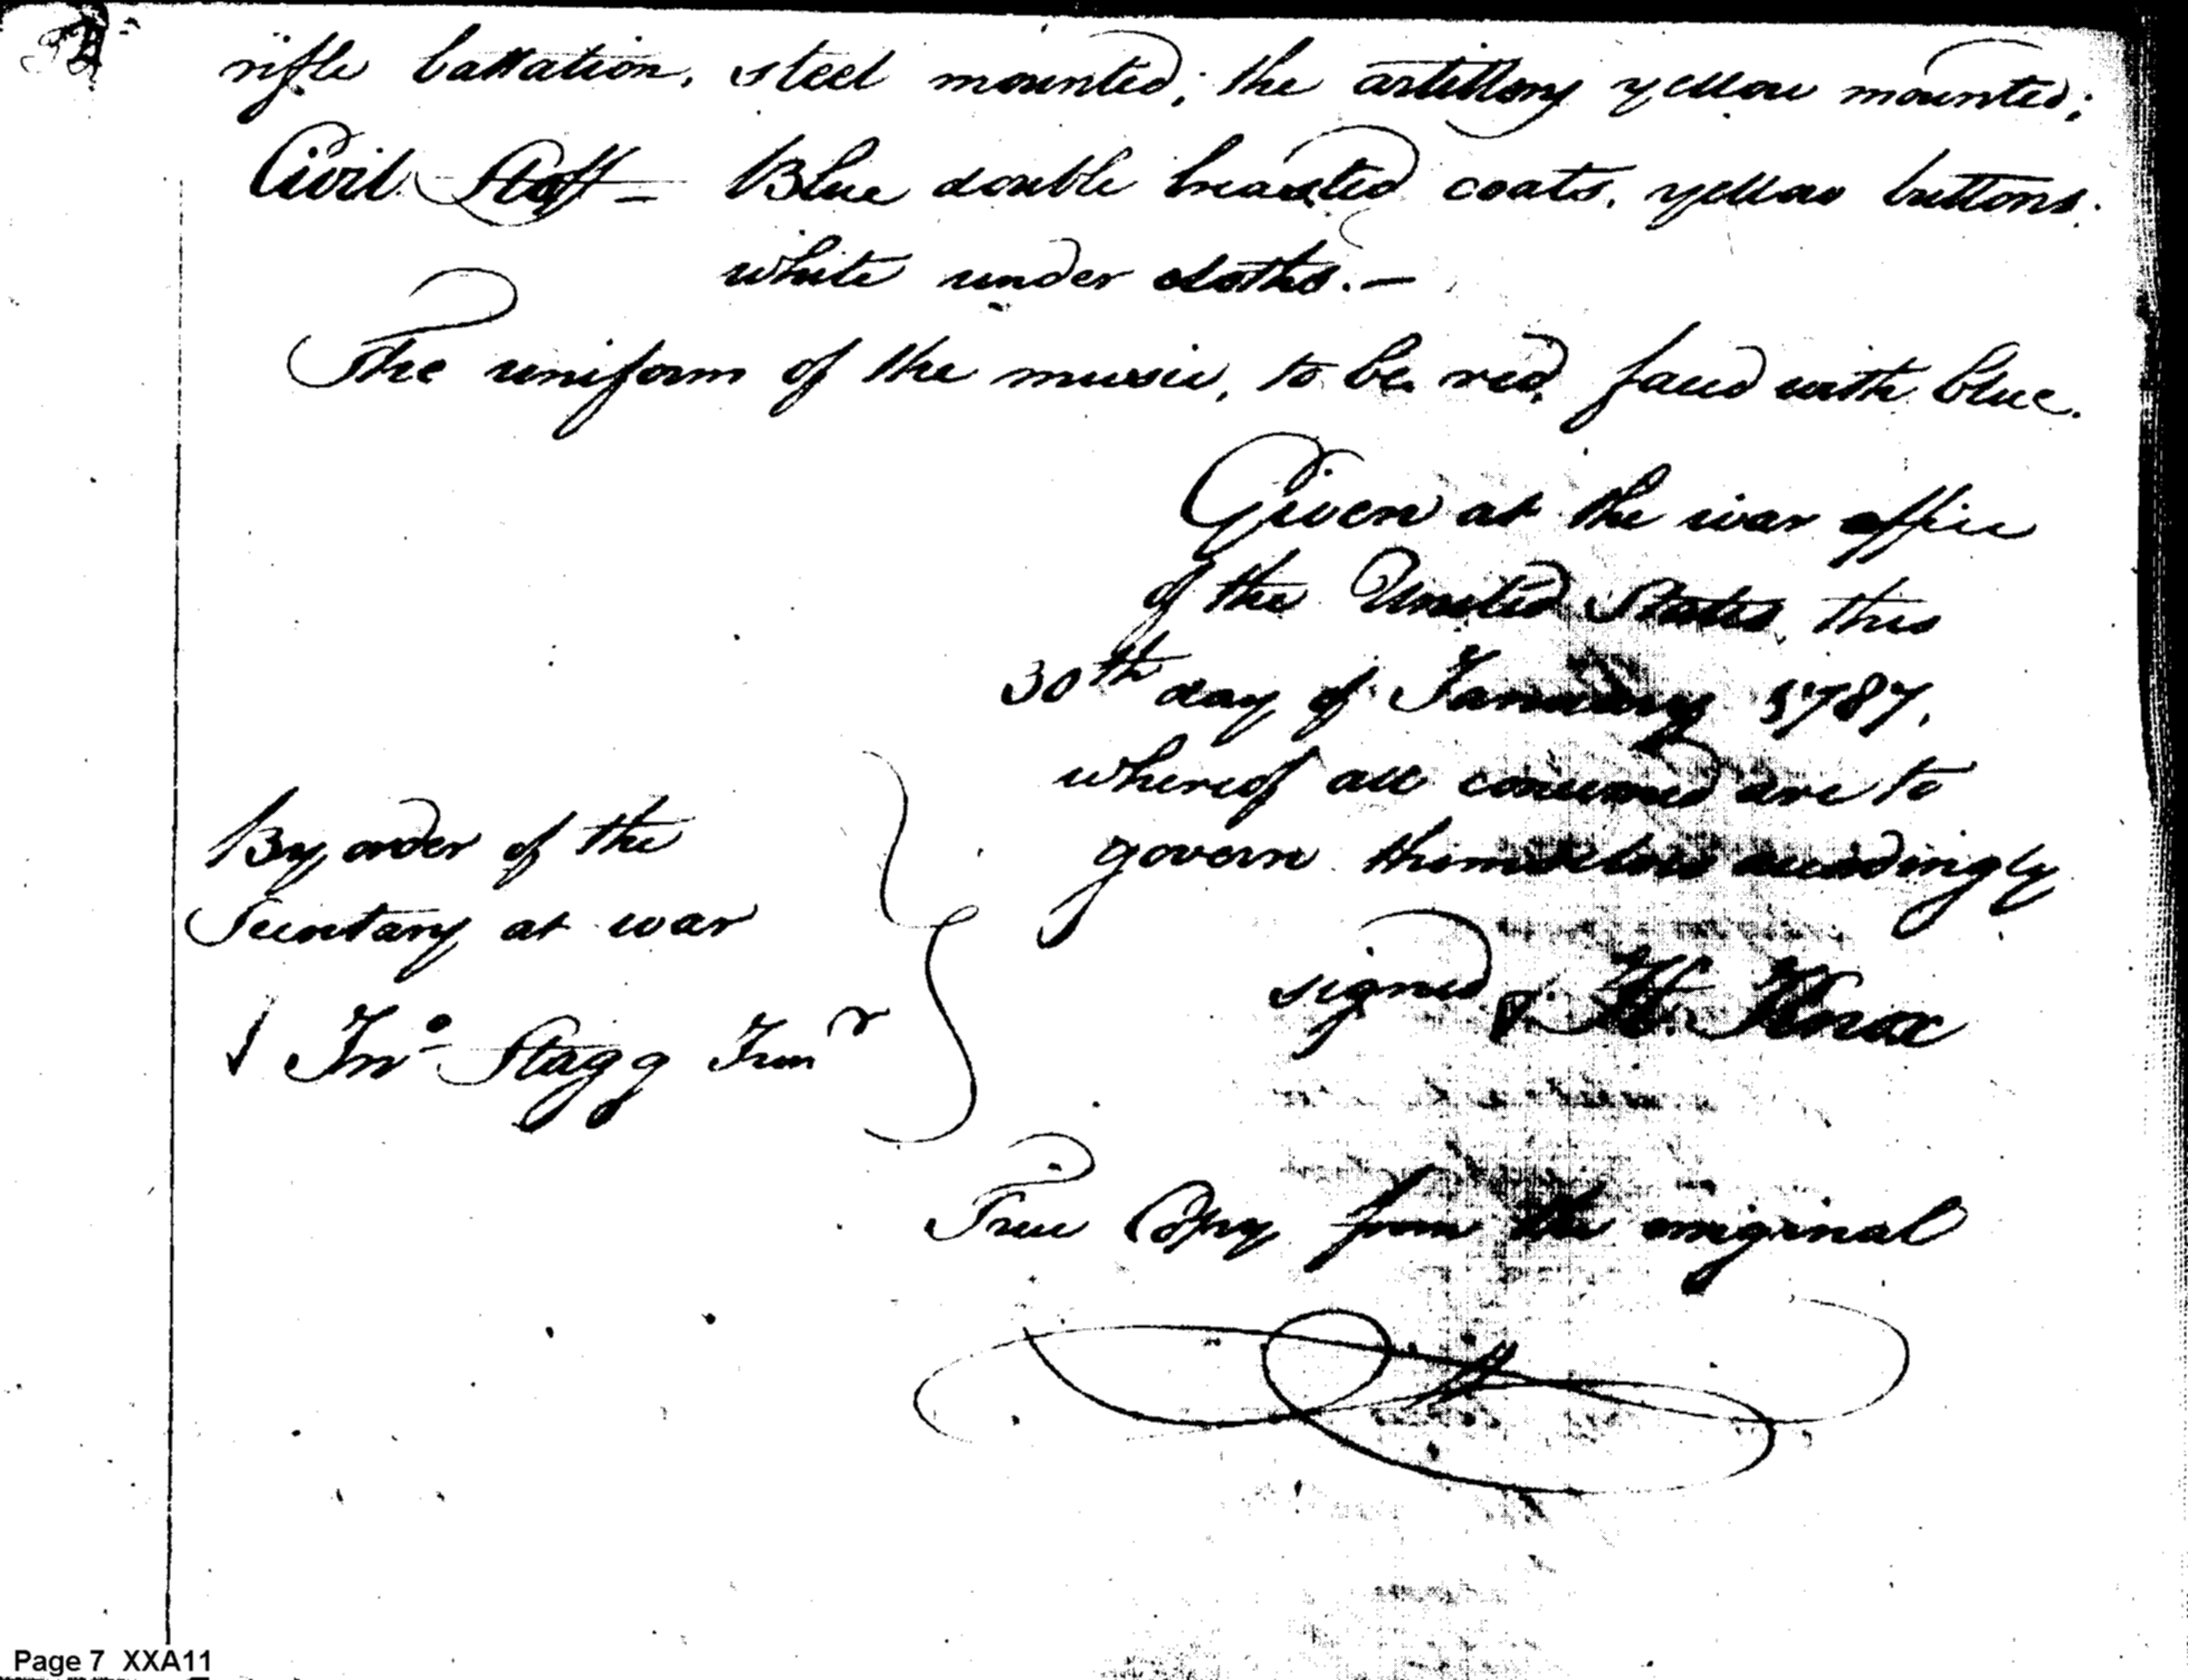 rifle battalion, steel mounted; the artillery yellow mounted;
Civil Staff = Blue double breasted coats, yellow buttons.
white under cloths. —
The uniform of the music, to be red, faced with blue.
Given at the war office
of the United States this
30th day of January 1787.
whereof all concerned are to
govern themselves accordingly
signed H. Knox
By order of the
Secretary at war
Jno Stagg Junr
True Copy from the original
Page 7 XXA11